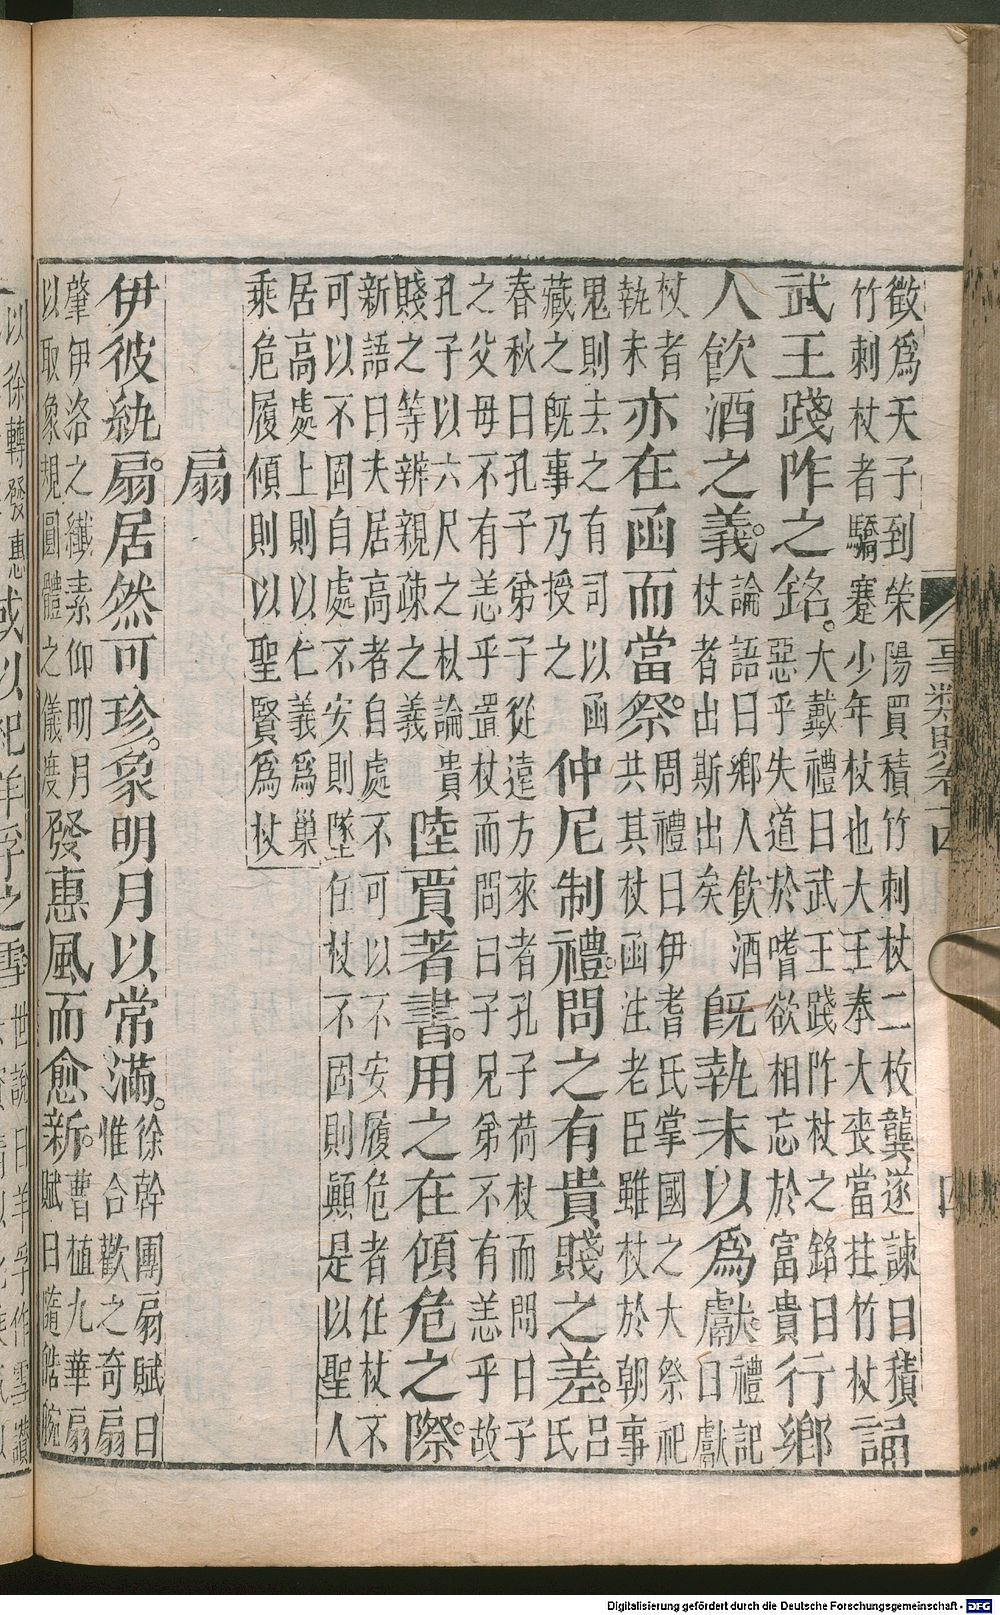 徵爲天子到滎陽買積竹刺杖二枚龔遂諫曰積竹刺杖者驕蹇少年杖也大王奉大喪當拄竹杖誦
武王踐阼之銘。大戴禮曰武王踐阼杖之銘曰惡乎失道於嗜欲相忘於富貴行鄉
人飲酒之義。論語曰鄉人飲酒杖者出斯出矣旣執末以爲獻。禮記曰獻
杖者執末亦在函而當祭。周禮曰伊耆氏掌國之大祭祀共其杖函注老臣雖杖於朝事
鬼則去之有司以函藏之旣事乃授之仲尼制禮。問之有貴賤之差。呂氏
春秋曰孔子弟子從遠方來者孔子荷杖而問曰子之父母不有恙乎置杖而問曰子兄弟不有恙乎故
孔子以六尺之杖論貴賤之等辨親疎之義陸賈著書。用之在傾危之際。
新語曰夫居高者自處不可以不安履危者任杖不可以不固自處不安則墜任杖不固則顚是以聖人
居高處上則以仁義爲巢乘危履傾則以聖賢爲杖
扇
伊彼紈扇。居然可珍。象明月以常滿。徐幹團扇賦曰惟合歡之奇扇
肇伊洛之纖素仰明月以取象規圓體之儀度發惠風而愈新。曹植九華扇賦曰隨皓腕
以徐轉發惠或以紀羊孚之雪世說曰羊孚作雪讚
四
Digitalisierung gefördert durch die Deutsche Forschungsgemeinschaft - DFG